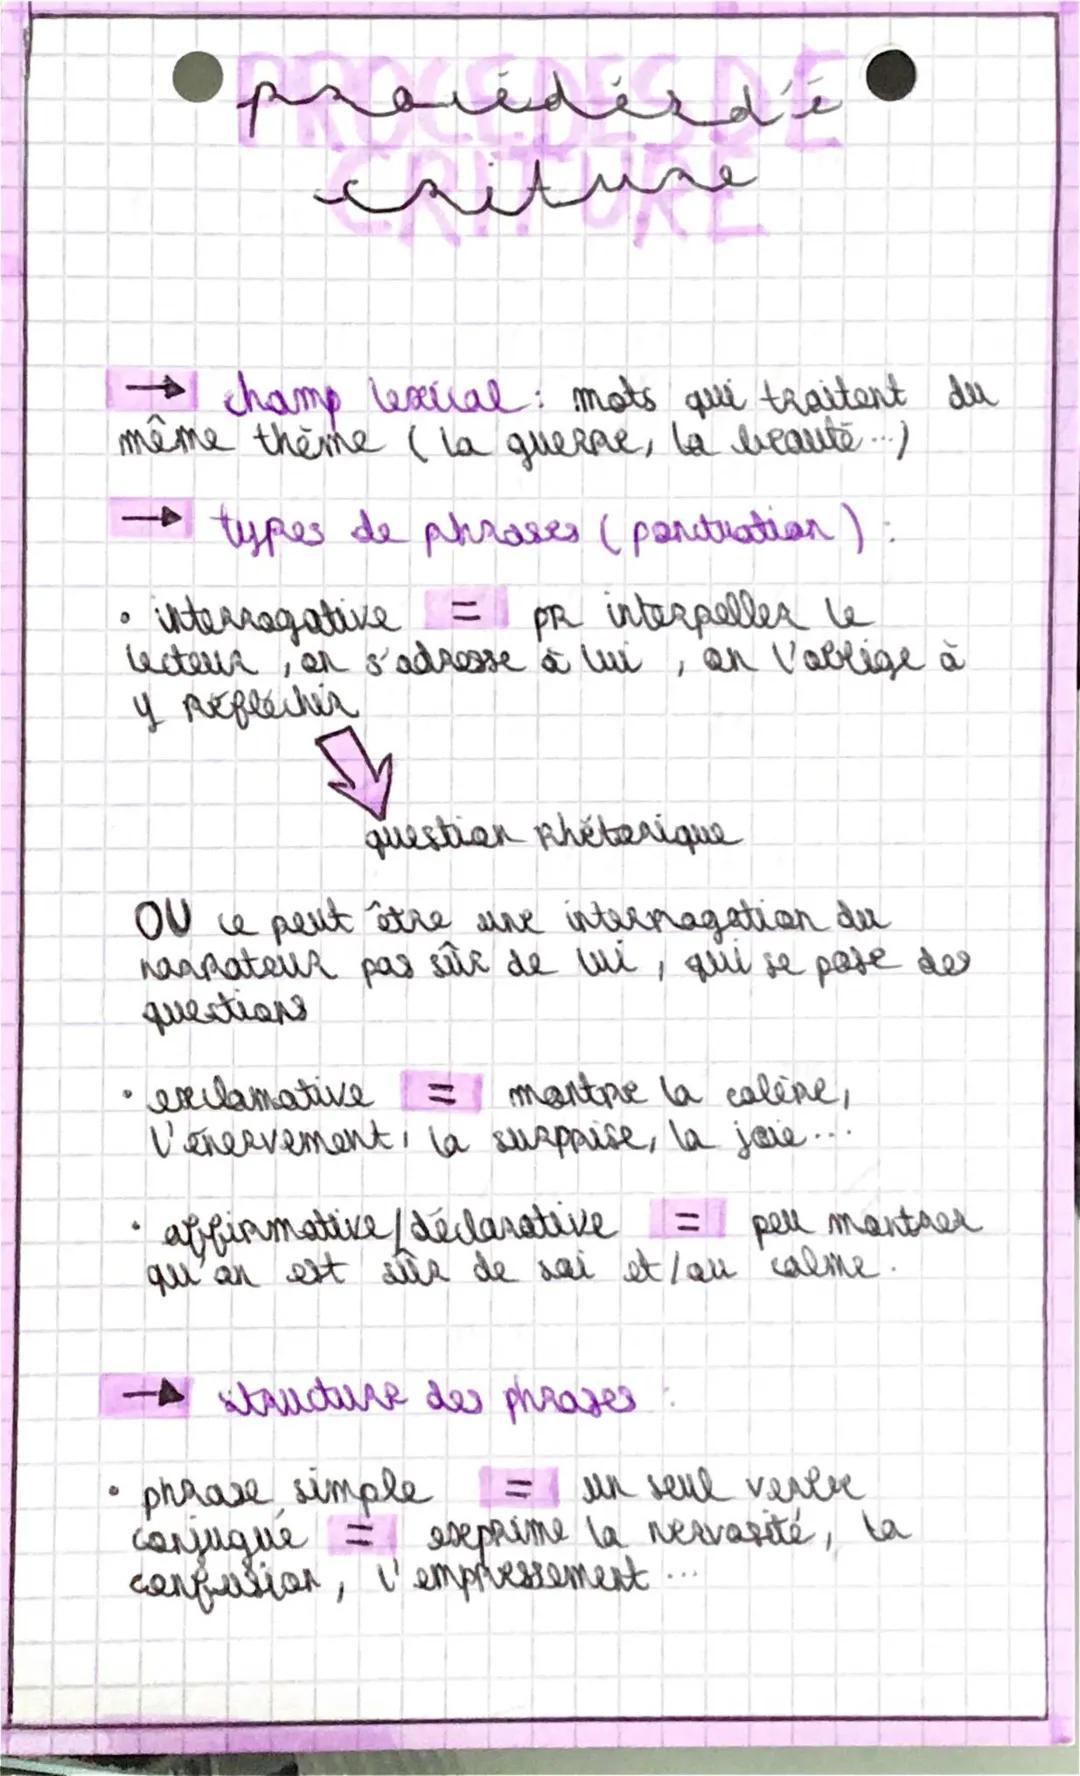 PROCEDES D'E
CRITURE
procédés d'é
criture
→ champ lexical : mots qui traitent du
même thème ( la guerre, la beauté ...)
→ types de phrases ( ponctuation ) :
• interrogative = pr interpeller le
lecteur , on s'adresse à lui , on l'oblige à
y réfléchir
question rhétorique
OU ce peut être une interrogation du
narrateur pas sûr de lui , qui se pose des
questions
• exclamative = montre la colère,
l'énervement, la surprise, la joie ...
• affirmative/déclarative = peu montrer
qu'on est sûr de soi et/ou calme.
→ structure des phrases :
• phrase simple = un seul verbe
conjugué = exprime la nervosité, la
confusion, l'empressement ...